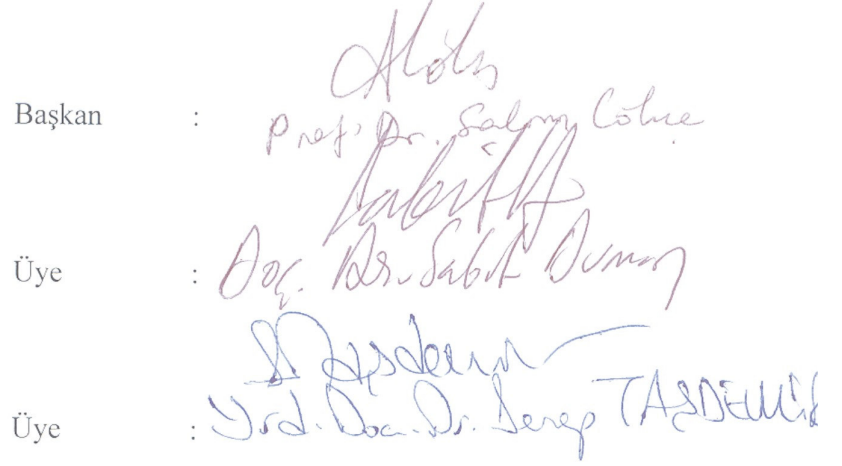 Başkan :
Prof. Dr. Salim Cöhce
Üye : Doç. Dr. Sabit Duman
Üye : Yrd. Doç. Dr. Serap TAŞDEMİR